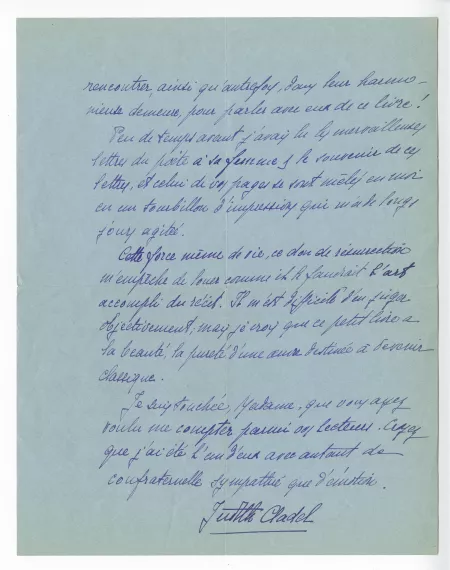 rencontrer, ainsi qu'autrefois, dans leur harmo-
nieuse demeure, pour parler avec eux de ce livre !
Peu de temps avant j'avais lu les merveilleuses
lettres du poète à sa femme & le souvenir de ces
lettres, et celui de vos pages se sont mêlés en moi
en un tourbillon d'impressions qui m'a de longs
jours agitée.
Cette force même de vie, ce don de résurrection
m'empêche de louer comme il le faudrait l'art
accompli du récit. Il m'est difficile d'en juger
objectivement, mais je crois que ce petit livre a
la beauté, la pureté d'une œuvre destinée à devenir
classique.
Je suis touchée, Madame, que vous ayez
voulu me compter parmi vos lecteurs. Croyez
que j'ai été l'un d'eux avec autant de
confraternelle sympathie que d'émotion.
Judith Cladel